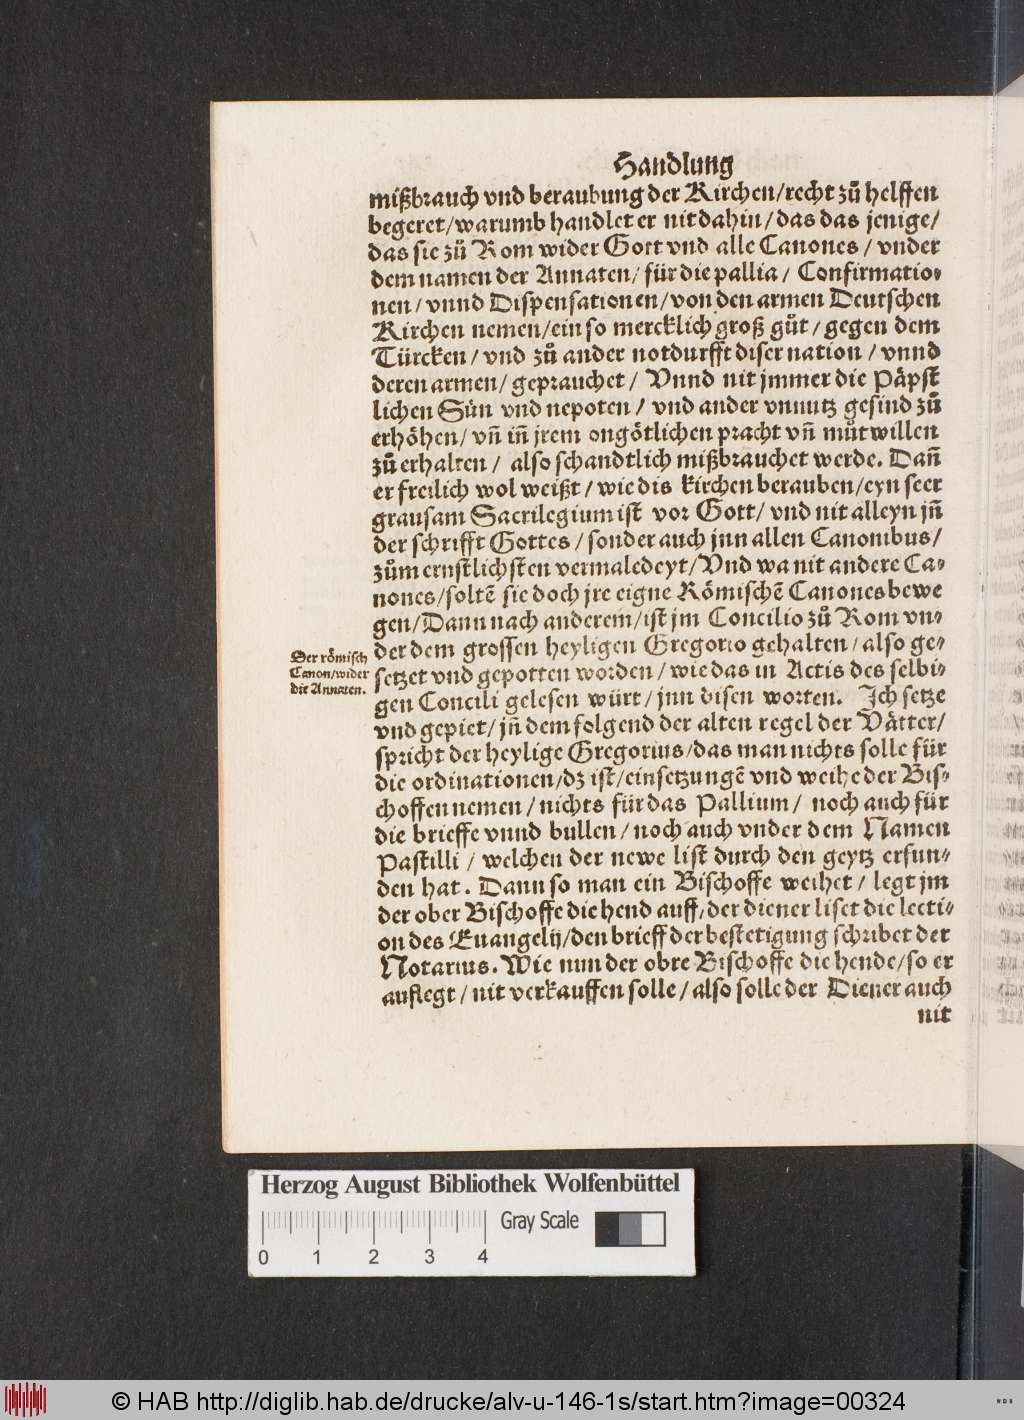 Handlung
mißbrauch vnd beraubung der Kirchen/recht zů helffen
begeret/warumb handlet er nit dahin/das das jenige/
das sie zů Rom wider Gott vnd alle Canones/vnder
dem namen der Annaten/für die pallia/Confirmatio⸗
nen/vnnd Dispensationen/von den armen Deutschen
Kirchen nemen/ein so mercklich groß gůt/gegen dem
Türcken/vnd zů ander notdurfft diser nation/vnnd
deren armen/geprauchet/Vnnd nit jmmer die Päpst
lichen Sün vnd nepoten/vnd ander vnnutz gesind zů
erhöhen/vñ iñ jrem ongötlichen pracht vñ můtwillen
zů erhalten/also schandtlich mißbrauchet werde. Dañ
er freilich wol weißt/wie dis kirchen berauben/eyn seer
grausam Sacrilegium ist vor Gott/vnd nit alleyn jñ
der schrifft Gottes/sonder auch jnn allen Canonibus/
zům ernstlichsten vermaledeyt/Vnd wa nit andere Ca⸗
nones/soltẽ sie doch jre eigne Römischẽ Canones bewe
gen/Dann nach anderem/ist jm Concilio zů Rom vn⸗
der dem grossen heyligen Gregorio gehalten/also ge⸗
setzet vnd gepotten worden/wie das in Actis des selbi⸗
gen Concili gelesen würt/jnn disen worten. Ich setze
vnd gepiet/jñ dem folgend der alten regel der Vätter/
spricht der heylige Gregorius/das man nichts solle für
die ordinationen/dz ist/einsetzungẽ vnd weihe der Bis⸗
choffen nemen/nichts für das Pallium/noch auch für
die brieffe vnnd bullen/noch auch vnder dem Namen
Pastilli/welchen der newe list durch den geytz erfun⸗
den hat. Dann so man ein Bischoffe weihet/legt jm
der ober Bischoffe die hend auff/der diener liset die lecti⸗
on des Euangelij/den brieff der bestetigung schribet der
Notarius. Wie nun der obre Bischoffe die hende/so er
auflegt/nit verkauffen solle/also solle der Diener auch
nit
Der römisch
Canon/wider
die Annaten.
Herzog August Bibliothek Wolfenbüttel
Gray Scale
0 1 2 3 4
© HAB http://diglib.hab.de/drucke/alv-u-146-1s/start.htm?image=00324